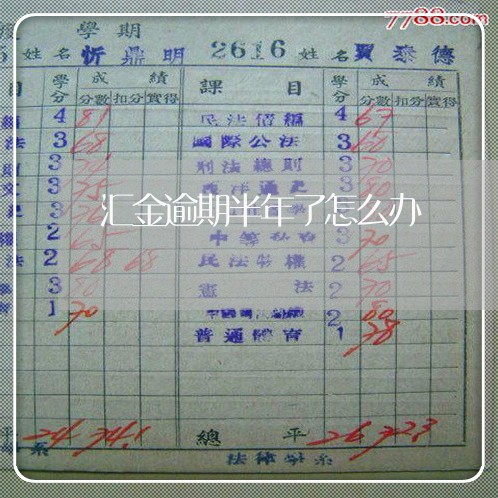 7788.com
學期
姓名 忻鼎明 2616 姓名 賈泰德
目 學分 成績 課目 學分 成績
分數 扣分 實得 分數 扣分 實得
4 81 民法債編 4 67
法 3 68 國際公法 3 60
3 刑法總則 3 70
3 75 西洋通史 3 80
汇金逾期半年了怎么办
2 65 3 70
法 2 68 68 民法物權 2 65
3 80 憲法 2 70
1 70 2 80
普通體育 1 78
平 24 74.1 總平 26 72.3
系 法律學系